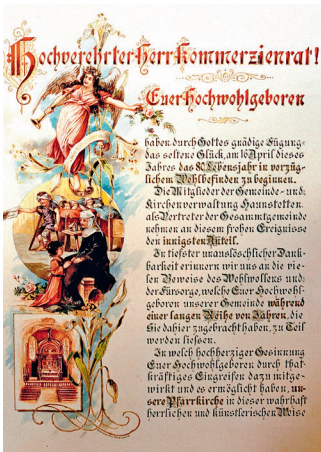 Hochverehrter Herr Kommerzienrat!
Euer Hochwohlgeboren
haben durch Gottes gnädige Fügung
das seltene Glück, am 16 April dieses
Jahres das 80 Lebensjahr in vorzüg-
lichem Wohlbefinden zu beginnen.
Die Mitglieder der Gemeinde- und
Kirchenverwaltung Haunstetten
als Vertreter der Gesammtgemeinde
nehmen an diesem frohen Ereignisse
den innigsten Anteil.
In tiefster unauslöschlicher Dank-
barkeit erinnern wir uns an die vie-
len Beweise des Wohlwollens und
der Fürsorge, welche Euer Hochwohl-
geboren unserer Gemeinde während
einer langen Reihe von Jahren, die
Sie dahier zugebracht haben, zu Teil
werden liessen.
In welch hochherziger Gesinnung
Euer Hochwohlgeboren durch that-
kräftiges Eingreifen dazu mitge-
wirkt und es ermöglicht haben, un-
sere Pfarrkirche in dieser wahrhaft
herrlichen und künstlerischen Weise